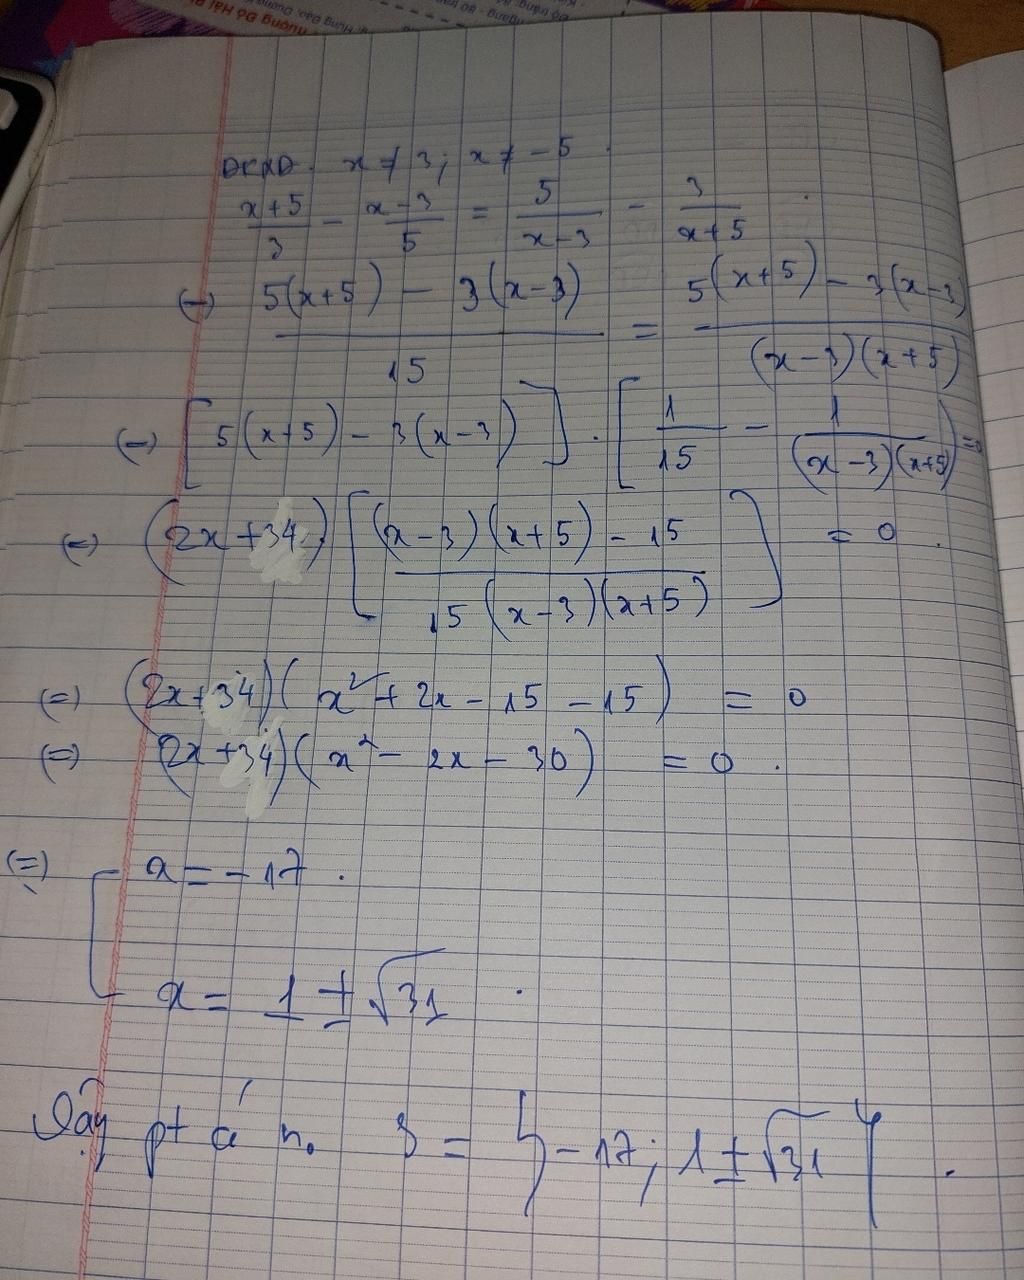 ĐKXĐ. x ≠ 3; x ≠ -5.
(x+5)/3 - (x-3)/5 = 5/(x-3) - 3/(x+5).
(=) (5(x+5) - 3(x-3))/15 = (5(x+5) - 3(x-3))/((x-3)(x+5))
(=) [5(x+5) - 3(x-3)] . [1/15 - 1/((x-3)(x+5)) = 0
(=) (2x+34) [((x-3)(x+5) - 15)/(15(x-3)(x+5))] = 0.
(=) (2x+34)(x² + 2x - 15 - 15) = 0
(=) (2x+34)(x² - 2x - 30) = 0.
(=) [ x = -17.
x = 1 ± √31.
Vậy pt có n. S = {-17; 1 ± √31}.